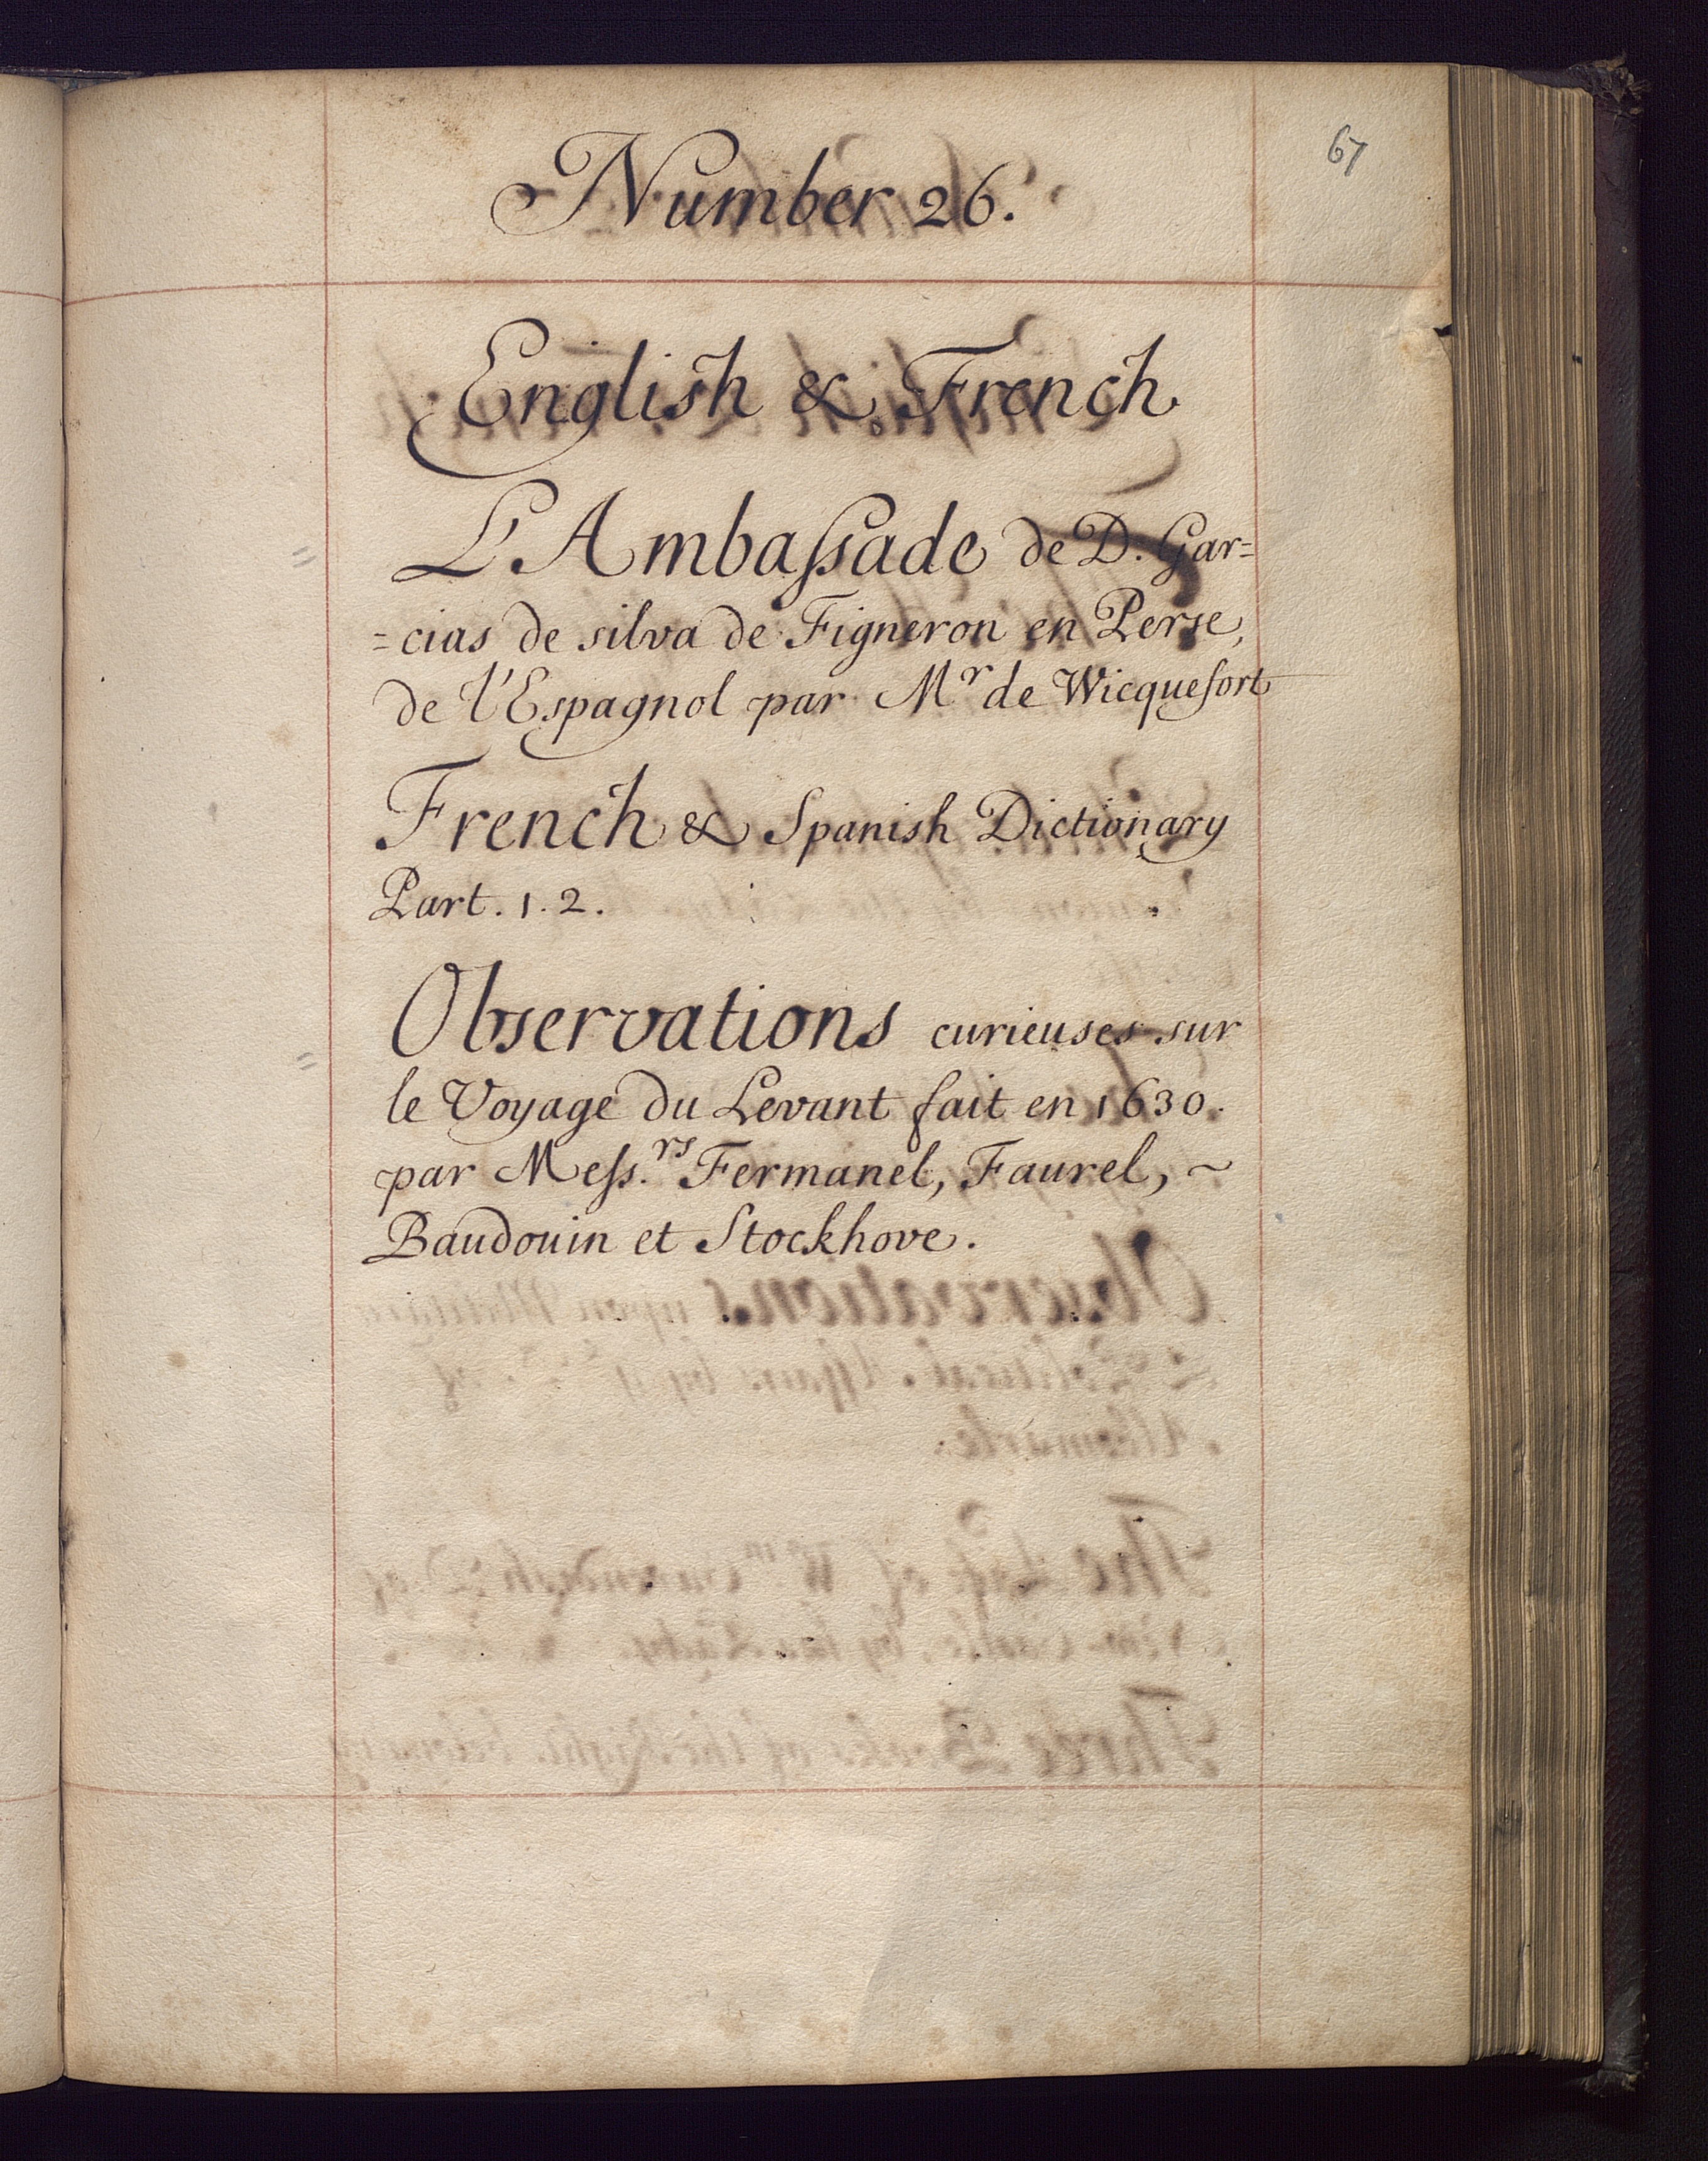 67
Number 26.
English & French
L'Ambassade de D. Gar=
=cias de silva de Figneron en Perse,
de l'Espagnol par Mr de Wicquefort
French & Spanish Dictionary
Part. 1. 2.
Observations curieuses sur
le Voyage du Levant fait en 1630.
par Mess.rs Fermanel, Faurel, ~
Baudouin et Stockhove.